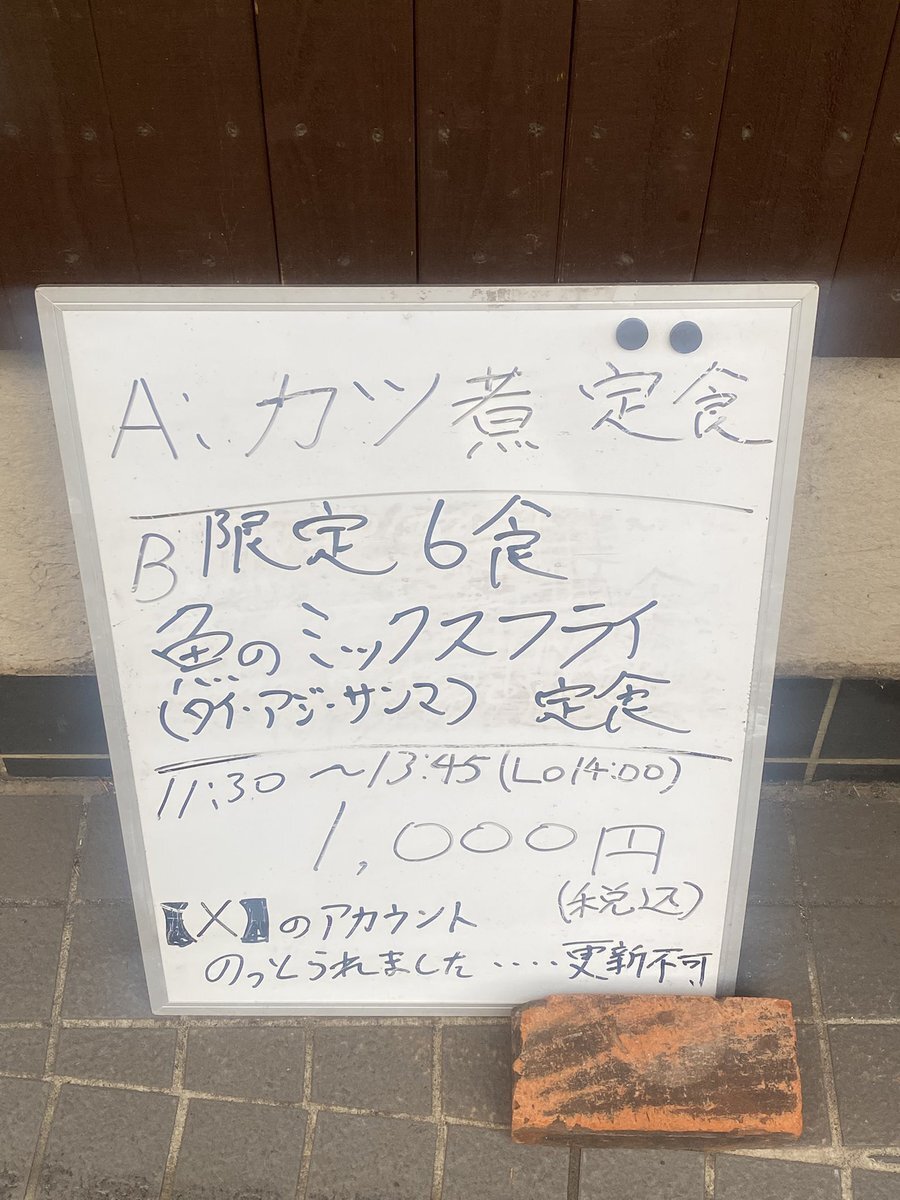 A: カツ煮 定食
B 限定 6食
魚のミックスフライ
(タイ・アジ・サンマ) 定食
11:30 〜13:45 (LO14:00)
1,000円
(税込)
【X】のアカウント
のっとられました ‥‥更新不可